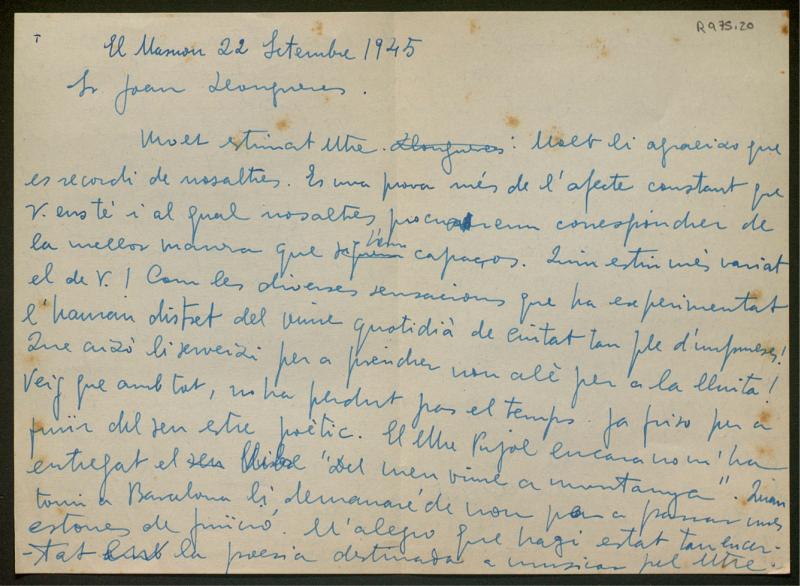 R 975.20
El Masnou 22 Setembre 1945
Sr Joan Llongueres.
Molt estimat Mtre. Llongueres: Molt li agraeixo que
es recordi de nosaltres. És una prova més de l'afecte constant que
V. ens té i al qual nosaltres procurarem correspondre de
la mellor manera que siguem capaços. Quin estiu més variat
el de V.! Com les diverses sensacions que ha experimentat
l'hauran distret del viure quotidià de ciutat tan ple d'impureses!
Que això li serveixi per a prendre nou alè per a la lluita!
Veig que amb tot, no ha perdut pas el temps. Ja friso per a
fruir del seu estre poètic. El Mtre Pujol encara no m'ha
entregat el seu llibre "Del meu viure a muntanya". Quan
torni a Barcelona li demanaré de nou per a passar unes
estones de fruïció. M'alegro que hagi estat tan encer-
-tat la poesia destinada a musicar pel Mtre.